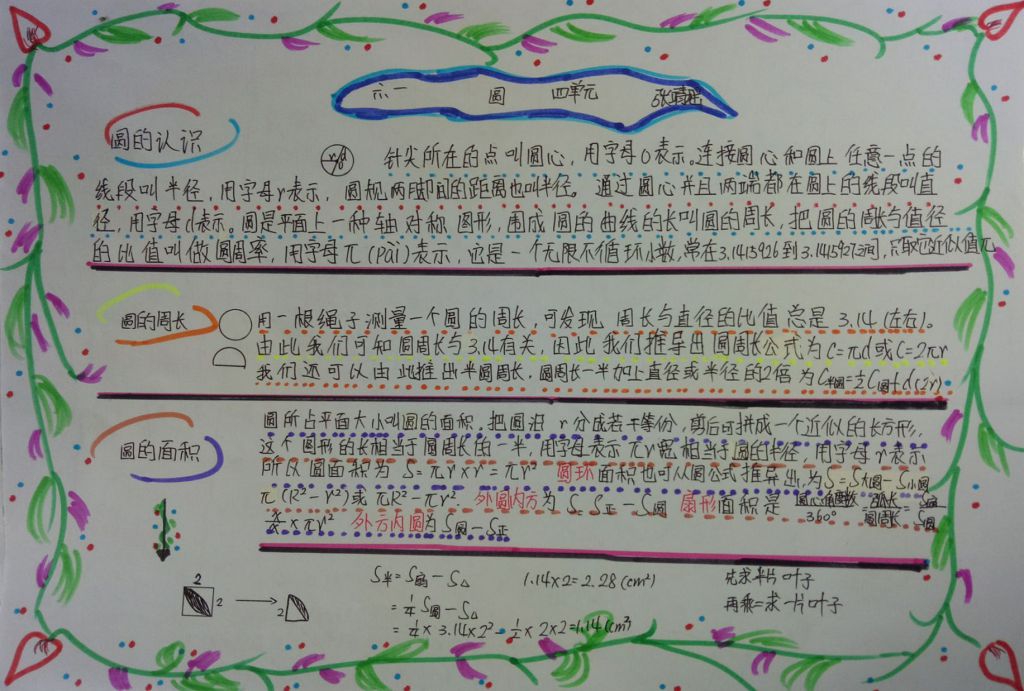 六一 圆 四单元
圆的认识
r d
针尖所在的点叫圆心，用字母O表示。连接圆心和圆上任意一点的
线段叫半径，用字母r表示，圆规两脚间的距离也叫半径。通过圆心并且两端都在圆上的线段叫直
径，用字母d表示。圆是平面上一种轴对称图形，围成圆的曲线的长叫圆的周长，把圆的周长与值径
的比值叫做圆周率，用字母π(pài)表示，它是一个无限不循环小数，常在3.1415926到3.1415927之间，只取它近似值π
圆的周长
用一根绳子测量一个圆的周长，可发现周长与直径的比值总是3.14(左右)。
由此我们可知圆周长与3.14有关，因此我们推导出圆周长公式为C=πd或C=2πr
我们还可以由此推出半圆周长，圆周长一半加上直径或半径的2倍为C半圆=½C圆+d(2r)
圆的面积
圆所占平面大小叫圆的面积。把圆沿r分成若干等份，剪后可拼成一个近似的长方形，
这个图形的长相当于圆周长的一半，用字母表示πr宽相当于圆的半径，用字母r表示
所以圆面积为S=πr×r=πr² 圆环面积也可从圆公式推导出，为S=S大圆-S小圆
π(R²-r²)或πR²-πr² 外圆内方为S=S正-S圆 扇形面积是 圆心角度数/360°=弧长/圆周长=S扇/S圆
×πr² 外方内圆为S圆-S正
S半=S扇-S△ 1.14×2=2.28(cm²) 先求半片叶子
=¼S圆-S△ 再乘二求一片叶子
=¼×3.14×2²-½×2×2=1.14(cm²)
2
2
2